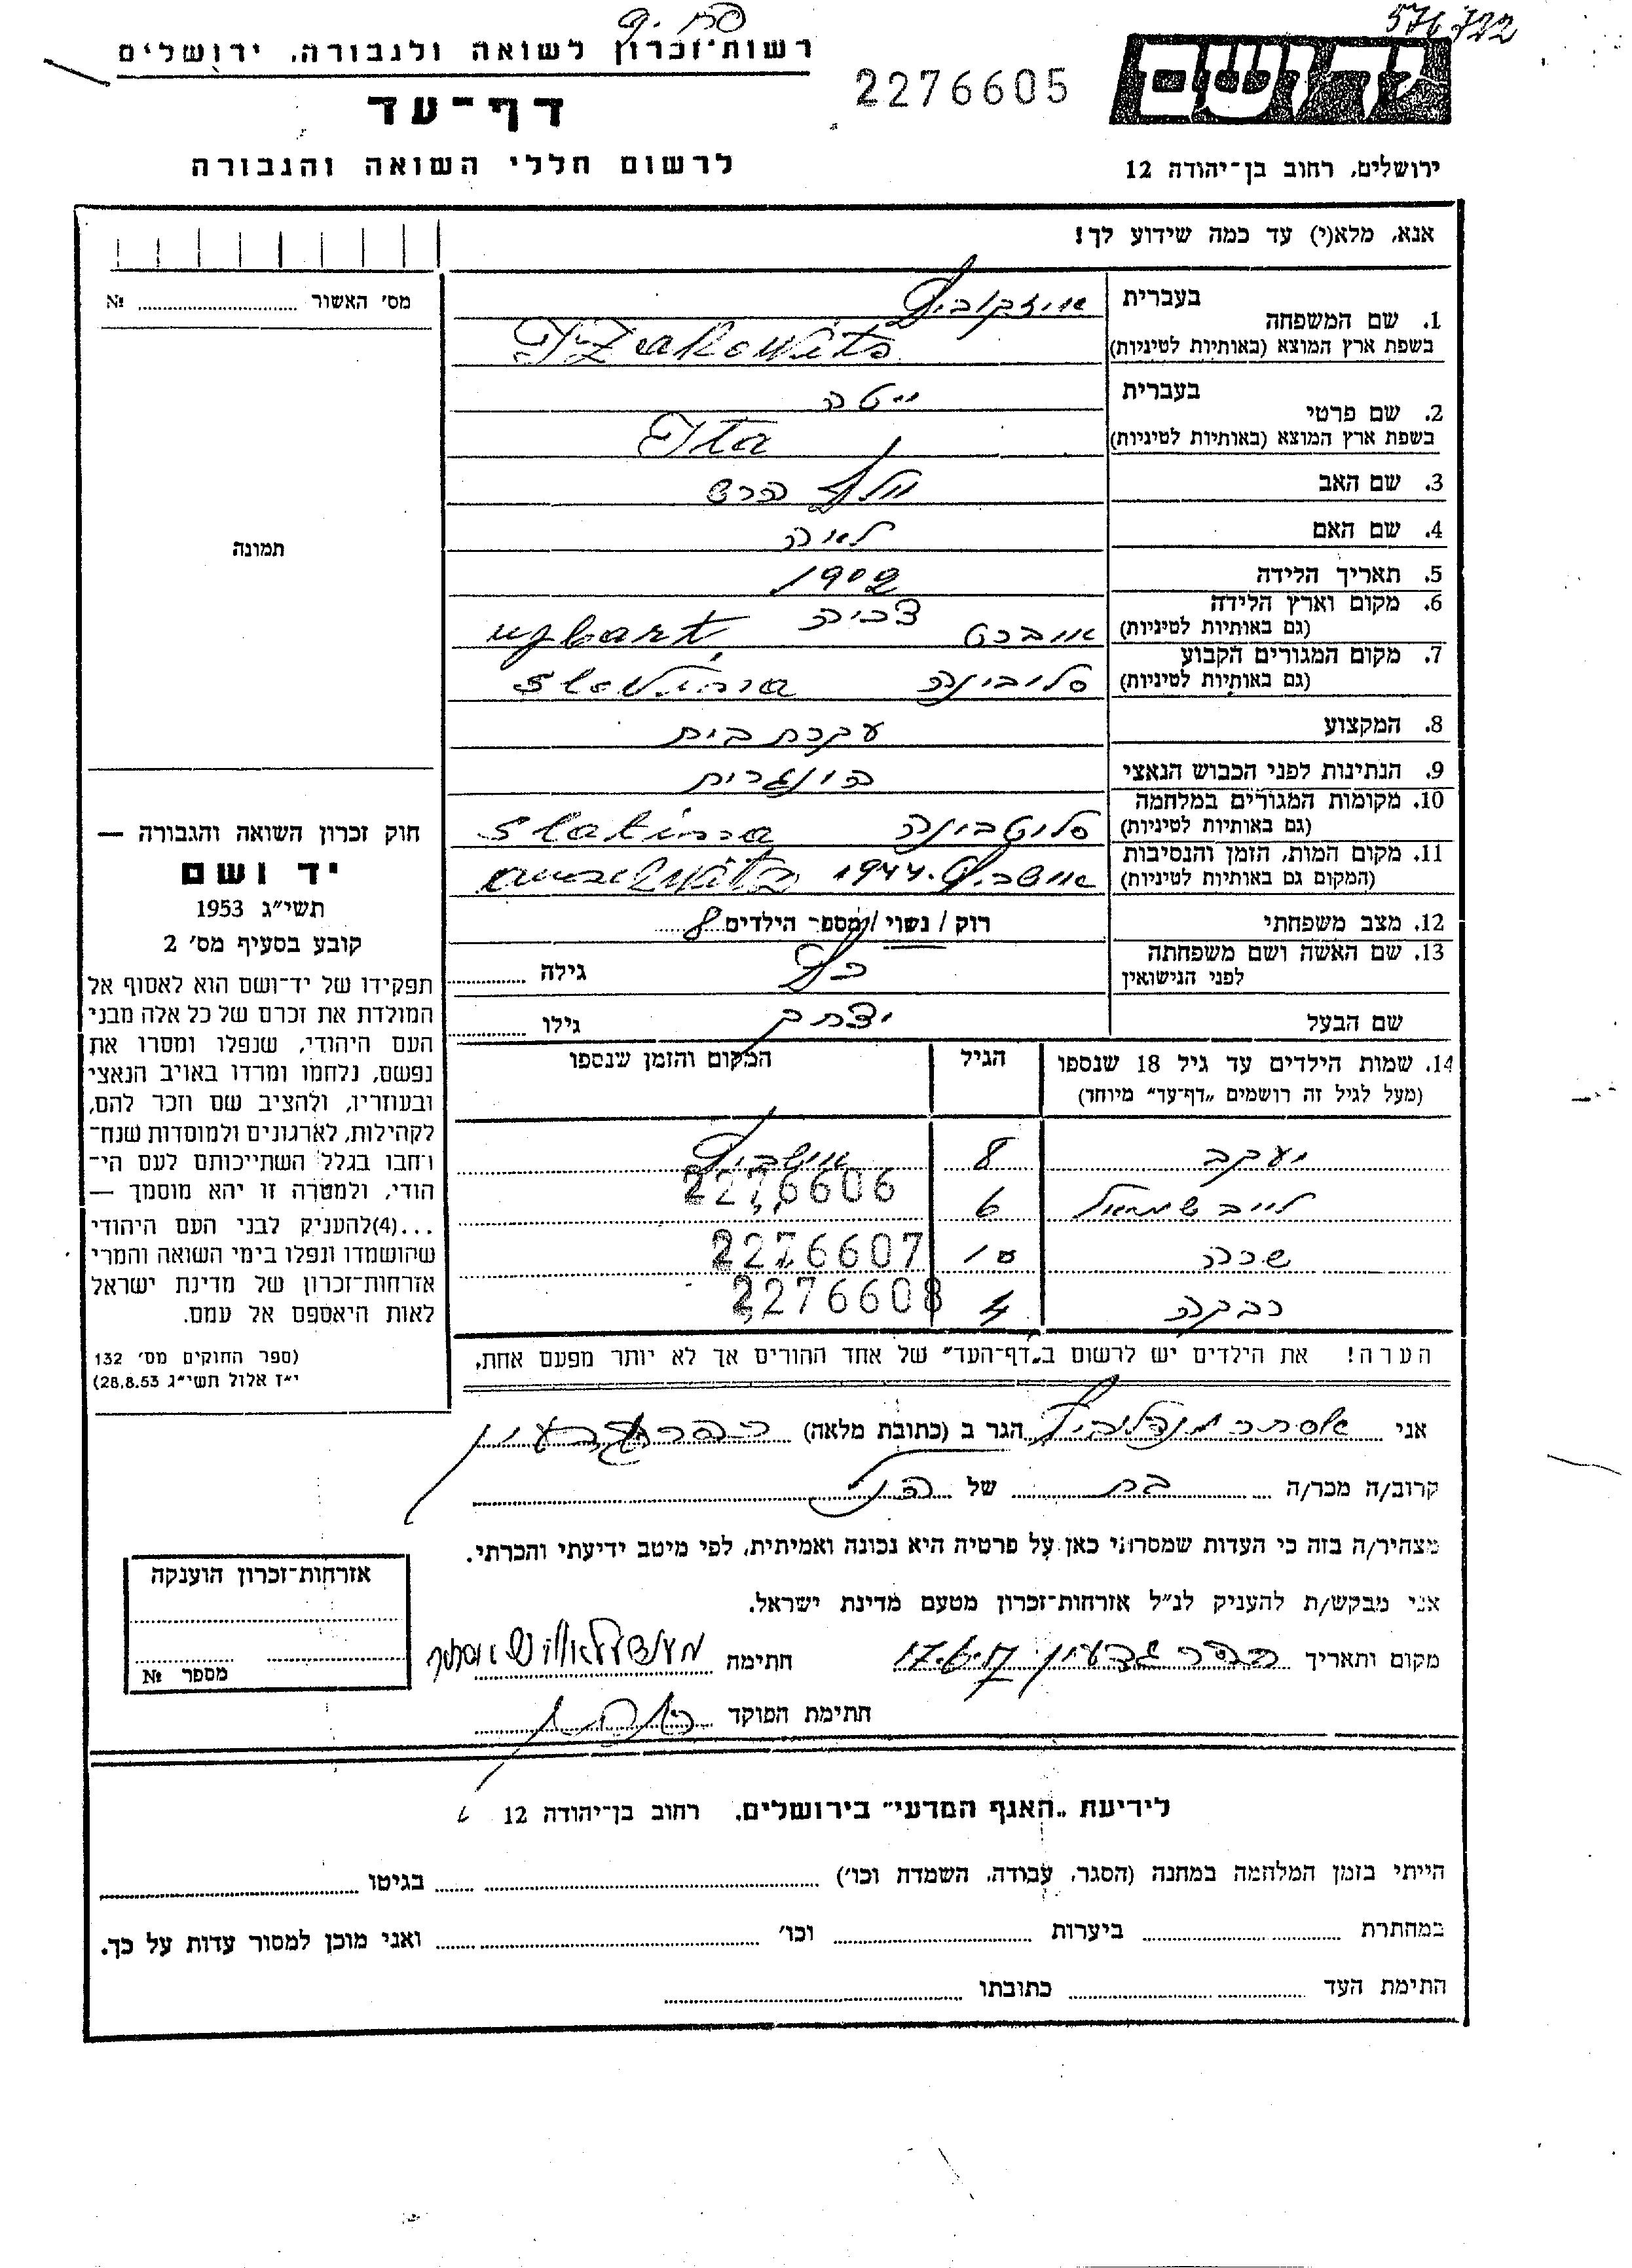 576722
יד ושם
2276605
רשות־זכרון לשואה ולגבורה, ירושלים
דף־עד
לרשום חללי השואה והגבורה
ירושלים, רחוב בן־יהודה 12
אנא, מלא(י) עד כמה שידוע לך!
מס׳ האשור № 
1. שם המשפחה בעברית איזקוביץ
בשפת ארץ המוצא (באותיות לטיניות) Izakowits
2. שם פרטי בעברית ייטה
בשפת ארץ המוצא (באותיות לטיניות) Ita
3. שם האב הרש
4. שם האם לאה
5. תאריך הלידה 1902
6. מקום וארץ הלידה
(גם באותיות לטיניות) אויברט uzbart
7. מקום המגורים הקבוע
(גם באותיות לטיניות) סלובינה slovina
8. המקצוע עקרת בית
9. הנתינות לפני הכבוש הנאצי הונגרית
10. מקומות המגורים במלחמה
(גם באותיות לטיניות) slatina
11. מקום המות, הזמן והנסיבות
(המקום גם באותיות לטיניות) אושביץ 1944
12. מצב משפחתי רוק / נשוי / מספר הילדים 8
13. שם האשה ושם משפחתה
לפני הנישואין כץ גילה
שם הבעל יצחק גילו
תמונה
חוק זכרון השואה והגבורה —
יד ושם
תשי״ג 1953
קובע בסעיף מס׳ 2
תפקידו של יד־ושם הוא לאסוף אל
המולדת את זכרם של כל אלה מבני
העם היהודי, שנפלו ומסרו את
נפשם, נלחמו ומרדו באויב הנאצי
ובעוזריו, ולהציב שם וזכר להם,
לקהילות, לארגונים ולמוסדות שנח־
רחבו בגלל השתייכותם לעם הי־
הודי, ולמטרה זו יהא מוסמך —
...(4) להעניק לבני העם היהודי
שהושמדו ונפלו בימי השואה והמרי
אזרחות־זכרון של מדינת ישראל
לאות היאספם אל עמם.
(ספר החוקים מס׳ 132
י״ז אלול תשי״ג 28.8.53)
14. שמות הילדים עד גיל 18 שנספו הגיל המקום והזמן שנספו
(מעל לגיל זה רושמים „דף־עד״ מיוחד)
יעקב 8 אושביץ
2276606
לייב שמואל 6
שרה 10 2276607
רבקה 4 2276608
הערה! את הילדים יש לרשום ב„דף־העד״ של אחד ההורים אך לא יותר מפעם אחת.
אני אסתר מנדלוביץ הגר ב (כתובת מלאה) כפר גדעון
קרוב/ה מכר/ה בת של הנ״ל
מצהיר/ה בזה כי העדות שמסרתי כאן על פרטיה היא נכונה ואמיתית, לפי מיטב ידיעתי והכרתי.
אני מבקש/ת להעניק לנ״ל אזרחות־זכרון מטעם מדינת ישראל.
מקום ותאריך כפר גדעון 17.6.57 חתימה
חתימת הפוקד
אזרחות־זכרון הוענקה
מספר №
לידיעת „האגף המדעי״ בירושלים, רחוב בן־יהודה 12
הייתי בזמן המלחמה במחנה (הסגר, עבודה, השמדה וכו׳) בגיטו
במחתרת ביערות וכו׳ ואני מוכן למסור עדות על כך.
התימת העד כתובתו